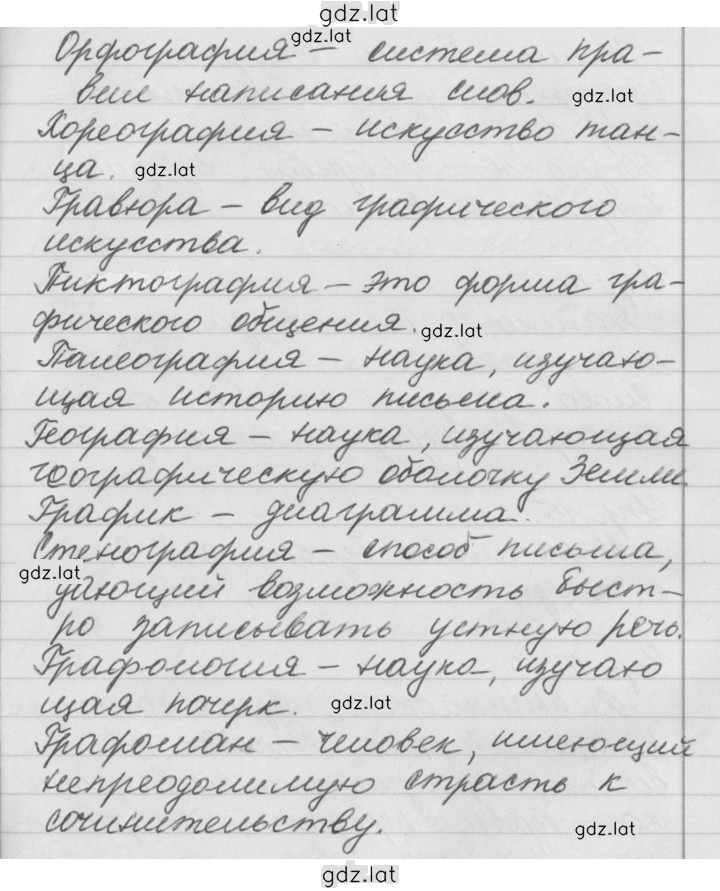 gdz.lat
Орфография – система пра-
gdz.lat
вил написания слов.
gdz.lat
Хореография – искусство тан-
ца.
gdz.lat
Гравюра – вид графического
искусства.
Пиктография – это форма гра-
фического общения.
gdz.lat
Палеография – наука, изучаю-
щая историю письма.
География – наука, изучающая
географическую оболочку Земли.
График – диаграмма.
Стенография – способ письма,
gdz.lat
дающий возможность быст-
ро записывать устную речь.
Графология – наука, изучаю
щая почерк.
gdz.lat
Графоман – человек, имеющий
непреодолимую страсть к
сочинительству.
gdz.lat
gdz.lat